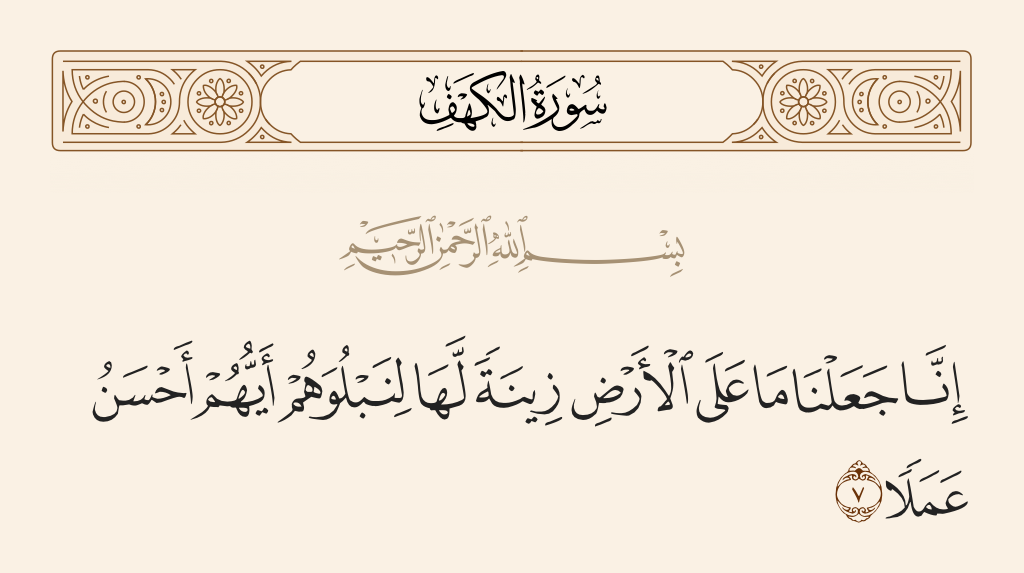 سُورَةُ الكَهۡفِ
بِسۡمِ ٱللَّهِ ٱلرَّحۡمَٰنِ ٱلرَّحِيمِ
إِنَّا جَعَلۡنَا مَا عَلَى ٱلۡأَرۡضِ زِينَةً لَّهَا لِنَبۡلُوَهُمۡ أَيُّهُمۡ أَحۡسَنُ
عَمَلًا ٧